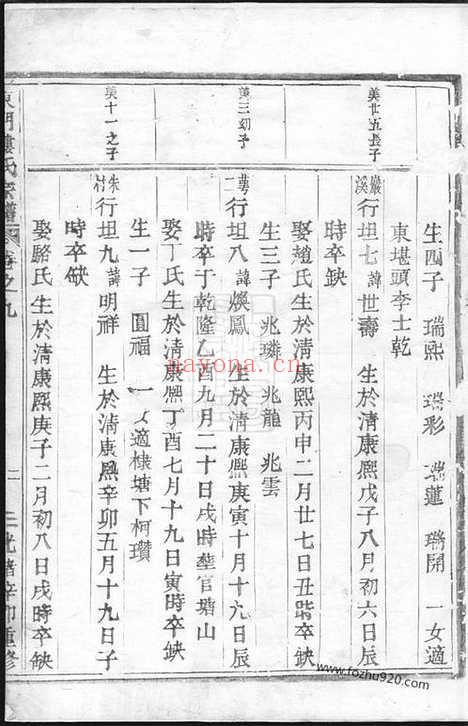 生四子　瑞熙　瑞彩　瑞蓮　瑞開　一女適
東堪頭李士乾
美廿五長子
巖溪　行坦七　諱世壽　生於清康熙戊子八月初六日辰
時卒缺
娶趙氏生於清康熙丙申二月廿七日丑時卒缺
生三子　兆璘　兆龍　兆雲
美三幼子
行坦八　諱煥鳳　生於清康熙庚寅十月十九日辰
時卒于乾隆乙酉九月二十日戌時塟官塘山
娶丁氏生於清康熙丁酉七月十九日寅時卒缺
生一子　圓福　一女適棣塘下柯瓚
美十一之子
朱村　行坦九　諱明祥　生於清康熙辛卯五月十九日子
時卒缺
娶駱氏生於清康熙庚子二月初八日戌時卒缺
東門樓氏宗譜　卷之九　二　光緒辛卯重修
nayona.cn
www.fozhu920.com